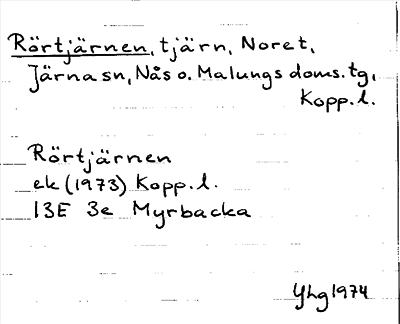 Rörtjärnen, tjärn, Noret,
Järna sn, Nås o. Malungs doms. tg,
Kopp. l.
Rörtjärnen
ek (1973) Kopp. l.
13E 3e Myrbacka
Yhg 1974